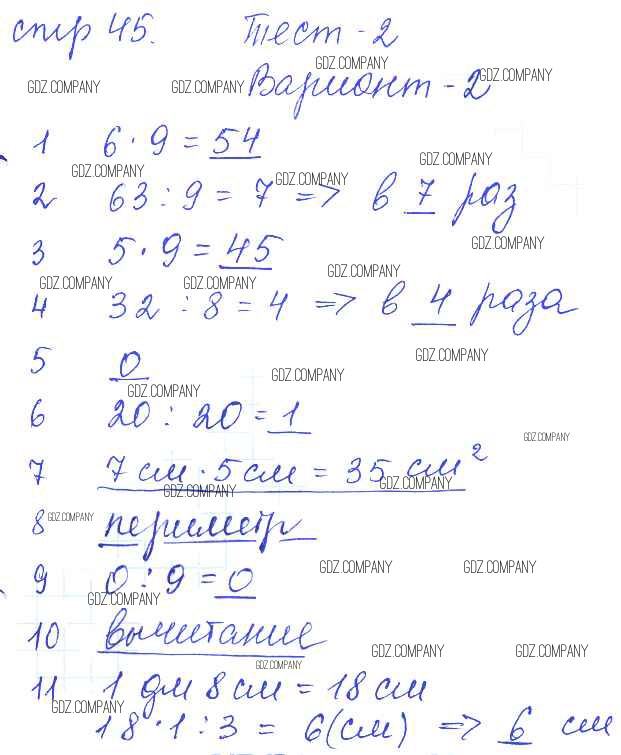 стр 45. Тест - 2
GDZ.COMPANY
GDZ.COMPANY GDZ.COMPANY Вариант - 2 GDZ.COMPANY
1 6 · 9 = 54
GDZ.COMPANY GDZ.COMPANY GDZ.COMPANY
2 63 : 9 = 7 => в 7 раз
3 5 · 9 = 45 GDZ.COMPANY
GDZ.COMPANY GDZ.COMPANY GDZ.COMPANY
4 32 : 8 = 4 => в 4 раза
5 0 GDZ.COMPANY
GDZ.COMPANY GDZ.COMPANY
6 20 : 20 = 1
GDZ.COMPANY
7 7 см · 5 см = 35 см²
GDZ.COMPANY GDZ.COMPANY
8 GDZ.COMPANY периметр
9 0 : 9 = 0 GDZ.COMPANY GDZ.COMPANY
GDZ.COMPANY
10 вычитание GDZ.COMPANY GDZ.COMPANY
GDZ.COMPANY
11 1 дм 8 см = 18 см
GDZ.COMPANY
18 · 1 : 3 = 6 (см) => 6 см